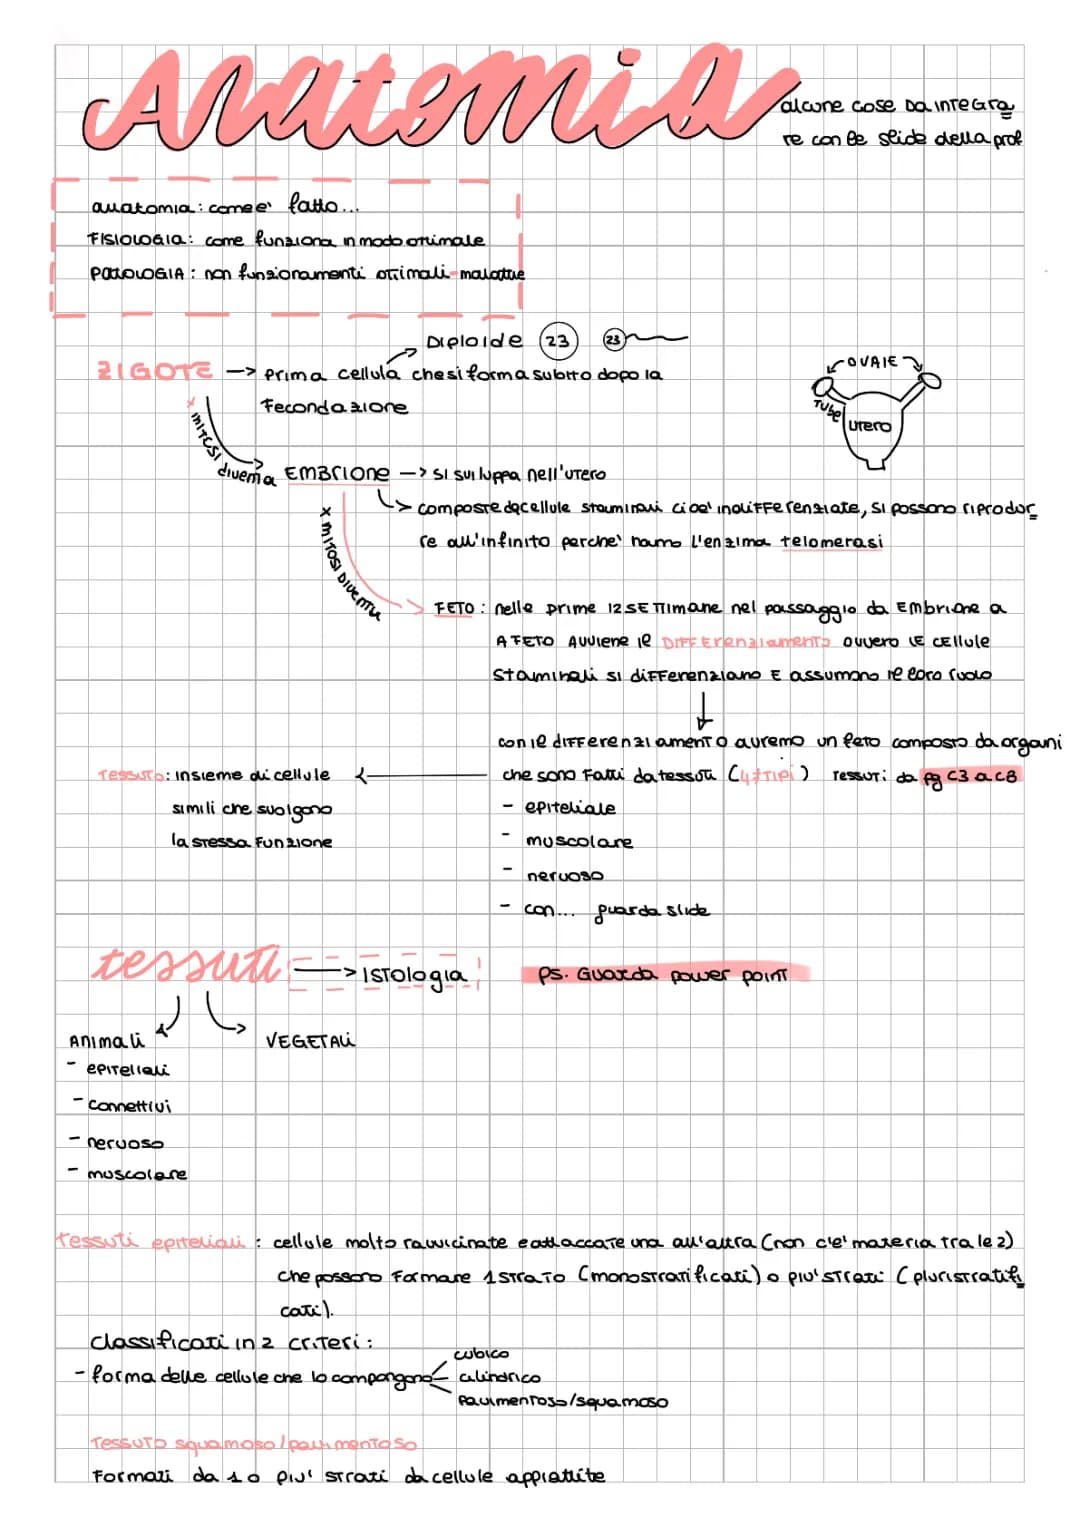 Anatomia
alcune cose da integra
re con le slide della prof
anatomia: come e' fatto...
FISIOLOGIA: come funziona in modo ottimale
PATOLOGIA: non funzionamenti ottimali-malattie
Diploide 23 23
ZIGOTE -> Prima cellula che si forma subito dopo la
Fecondazione
OVAIE
Tube
Utero
x mitosi diventa
EMBRIONE -> si sviluppa nell'utero
-> composte da cellule staminali cioe' indifferenziate, si possono riprodur
re all'infinito perche' hanno l'enzima telomerasi
x mitosi diventa
FETO: nelle prime 12 settimane nel passaggio da Embrione a
A FETO avviene il differenziamento ovvero le cellule
staminali si differenziano e assumono il loro ruolo
con il differenziamento avremo un feto composto da organi
che sono fatti da tessuti (4 ≠ tipi) tessuti da pg C3 a C8
Tessuto: insieme di cellule
simili che svolgono
la stessa funzione
- epiteliale
- muscolare
- nervoso
- con... guarda slide
tessuti -> Istologia
PS. Guarda power point
Animali
VEGETALI
- epiteliali
- Connettivi
- nervoso
- muscolare
Tessuti epiteliali: cellule molto ravvicinate e attaccate una all'altra (non c'e' materia tra le 2)
che possono formare 1 strato (monostratificati) o piu' strati (pluristratifi
cati).
Classificati in 2 criteri:
- forma delle cellule che lo compongono
cubico
cilindrico
Pavimentoso/squamoso
Tessuto squamoso/pavimentoso
Formati da 1 o piu' strati da cellule appiattite